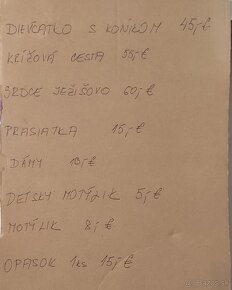 DIEVČATLO S KONÍKOM 45,-€
KRÍŽOVÁ CESTA 55,-€
SRDCE JEŽIŠOVO 60,-€
PRASIATKA 15,-€
DÁMY 10,-€
DETSKÝ MOTÝLIK 5,-€
MOTÝLIK 8,-€
OPASOK 1ks 15,-€